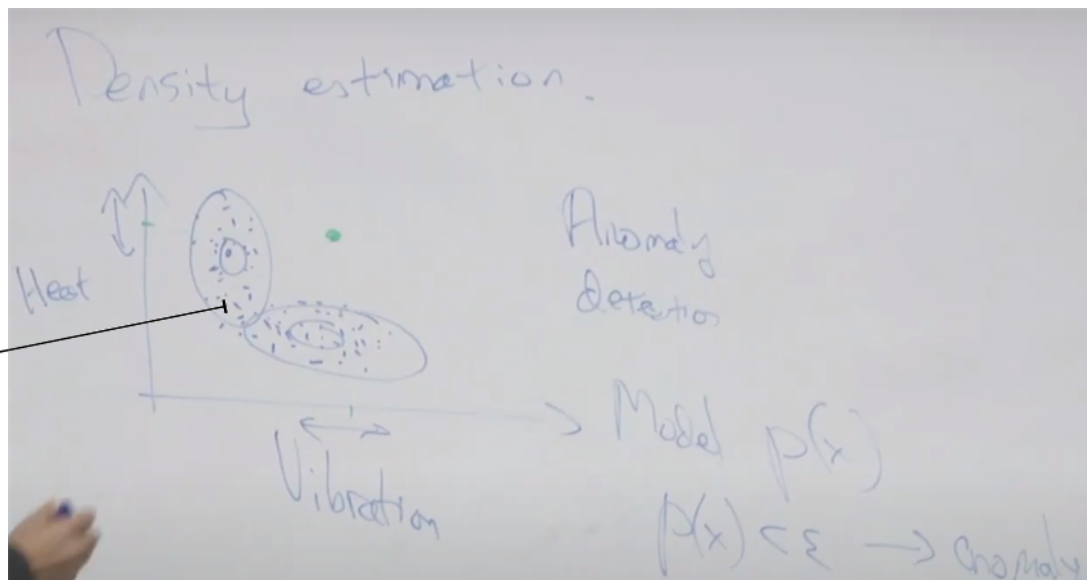 Density estimation.
Heat
Vibration
Anomaly
detection
Model p(x)
p(x) < ε → anomaly